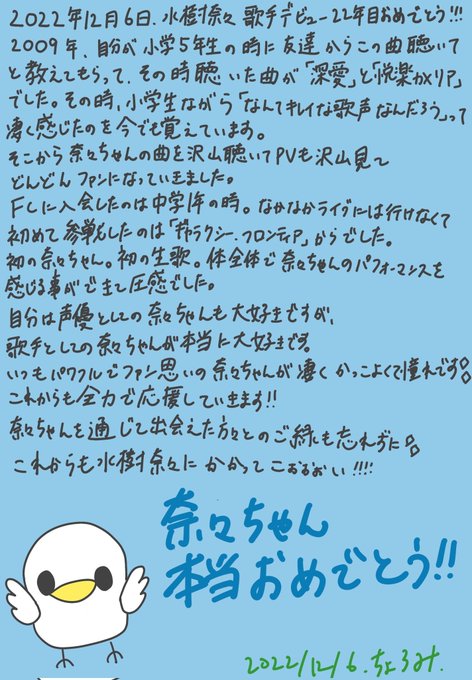 2022年12月6日、水樹奈々 歌手デビュー22年目おめでとう!!!
2009年、自分が小学5年生の時に友達からこの曲聴いて
と教えてもらって、その時聴いた曲が「深愛」と「悦楽カメリア」
でした。その時、小学生ながら「なんてキレイな歌声なんだろう」って
凄く感じたのを今でも覚えています。
そこから奈々ちゃんの曲を沢山聴いてPVも沢山見て
どんどんファンになっていきました。
FCに入会したのは中学1年の時。なかなかライブには行けなくて
初めて参戦したのは「ギャラクシー・フロンティア」からでした。
初の奈々ちゃん。初の生歌。体全体で奈々ちゃんのパフォーマンスを
感じる事ができて圧感でした。
自分は声優としての奈々ちゃんも大好きですが、
歌手としての奈々ちゃんが本当に大好きです。
いつもパワフルでファン思いの奈々ちゃんが凄くかっこよくて憧れです
これからも全力で応援していきます!!
奈々ちゃんを通じて出会えた方々とのご縁も忘れずに
これからも水樹奈々にかかってこおるぉい!!!!
奈々ちゃん
本当おめでとう!!
2022/12/6.ちょろみ.